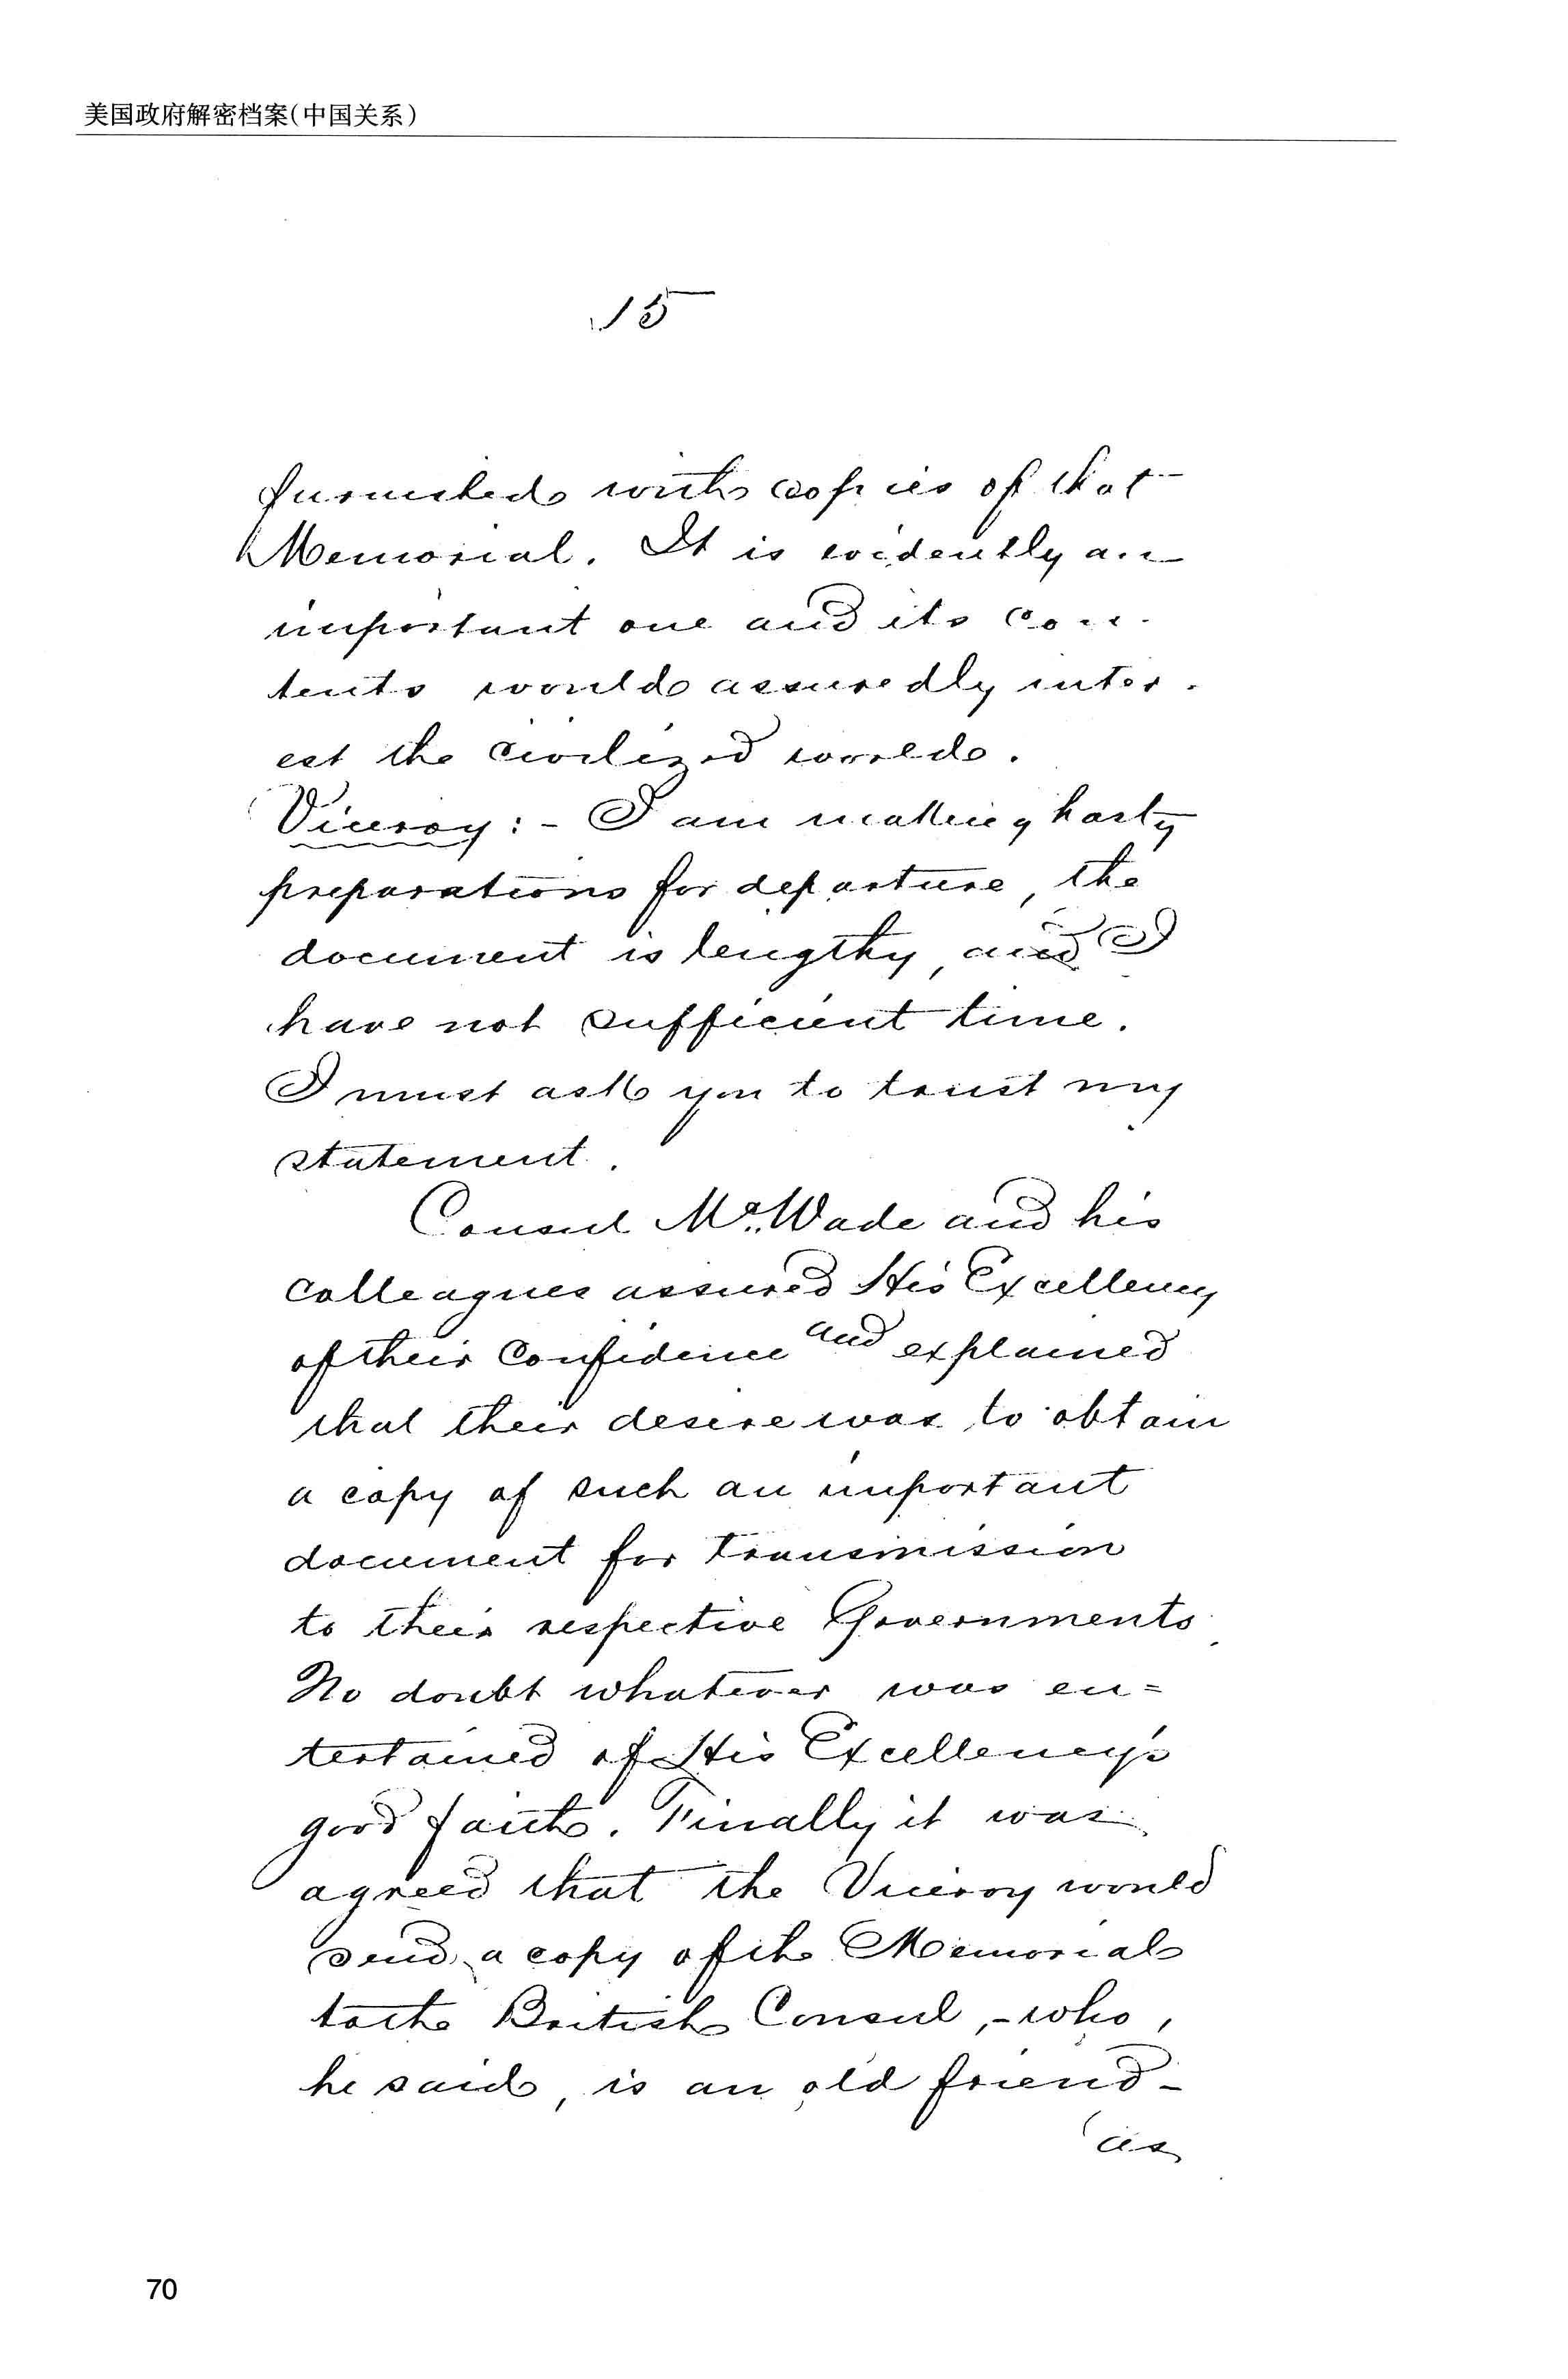 美国政府解密档案(中国关系)
15
furnished with copies of that
Memorial. It is evidently an
important one and its con-
tents would assuredly inter-
est the civilized world.
Viceroy:- I am making hasty
preparations for departure, the
document is lengthy, and I
have not sufficient time.
I must ask you to trust my
statement.
Consul McWade and his
colleagues assured His Excellency
of their confidence and explained
that their desire was to obtain
a copy of such an important
document for transmission
to their respective Governments
No doubt whatever was en=
tertained of His Excellency's
good faith. Finally it was
agreed that the Viceroy would
send a copy of the Memorial
to the British Consul,-who,
he said, is an old friend-
as
70